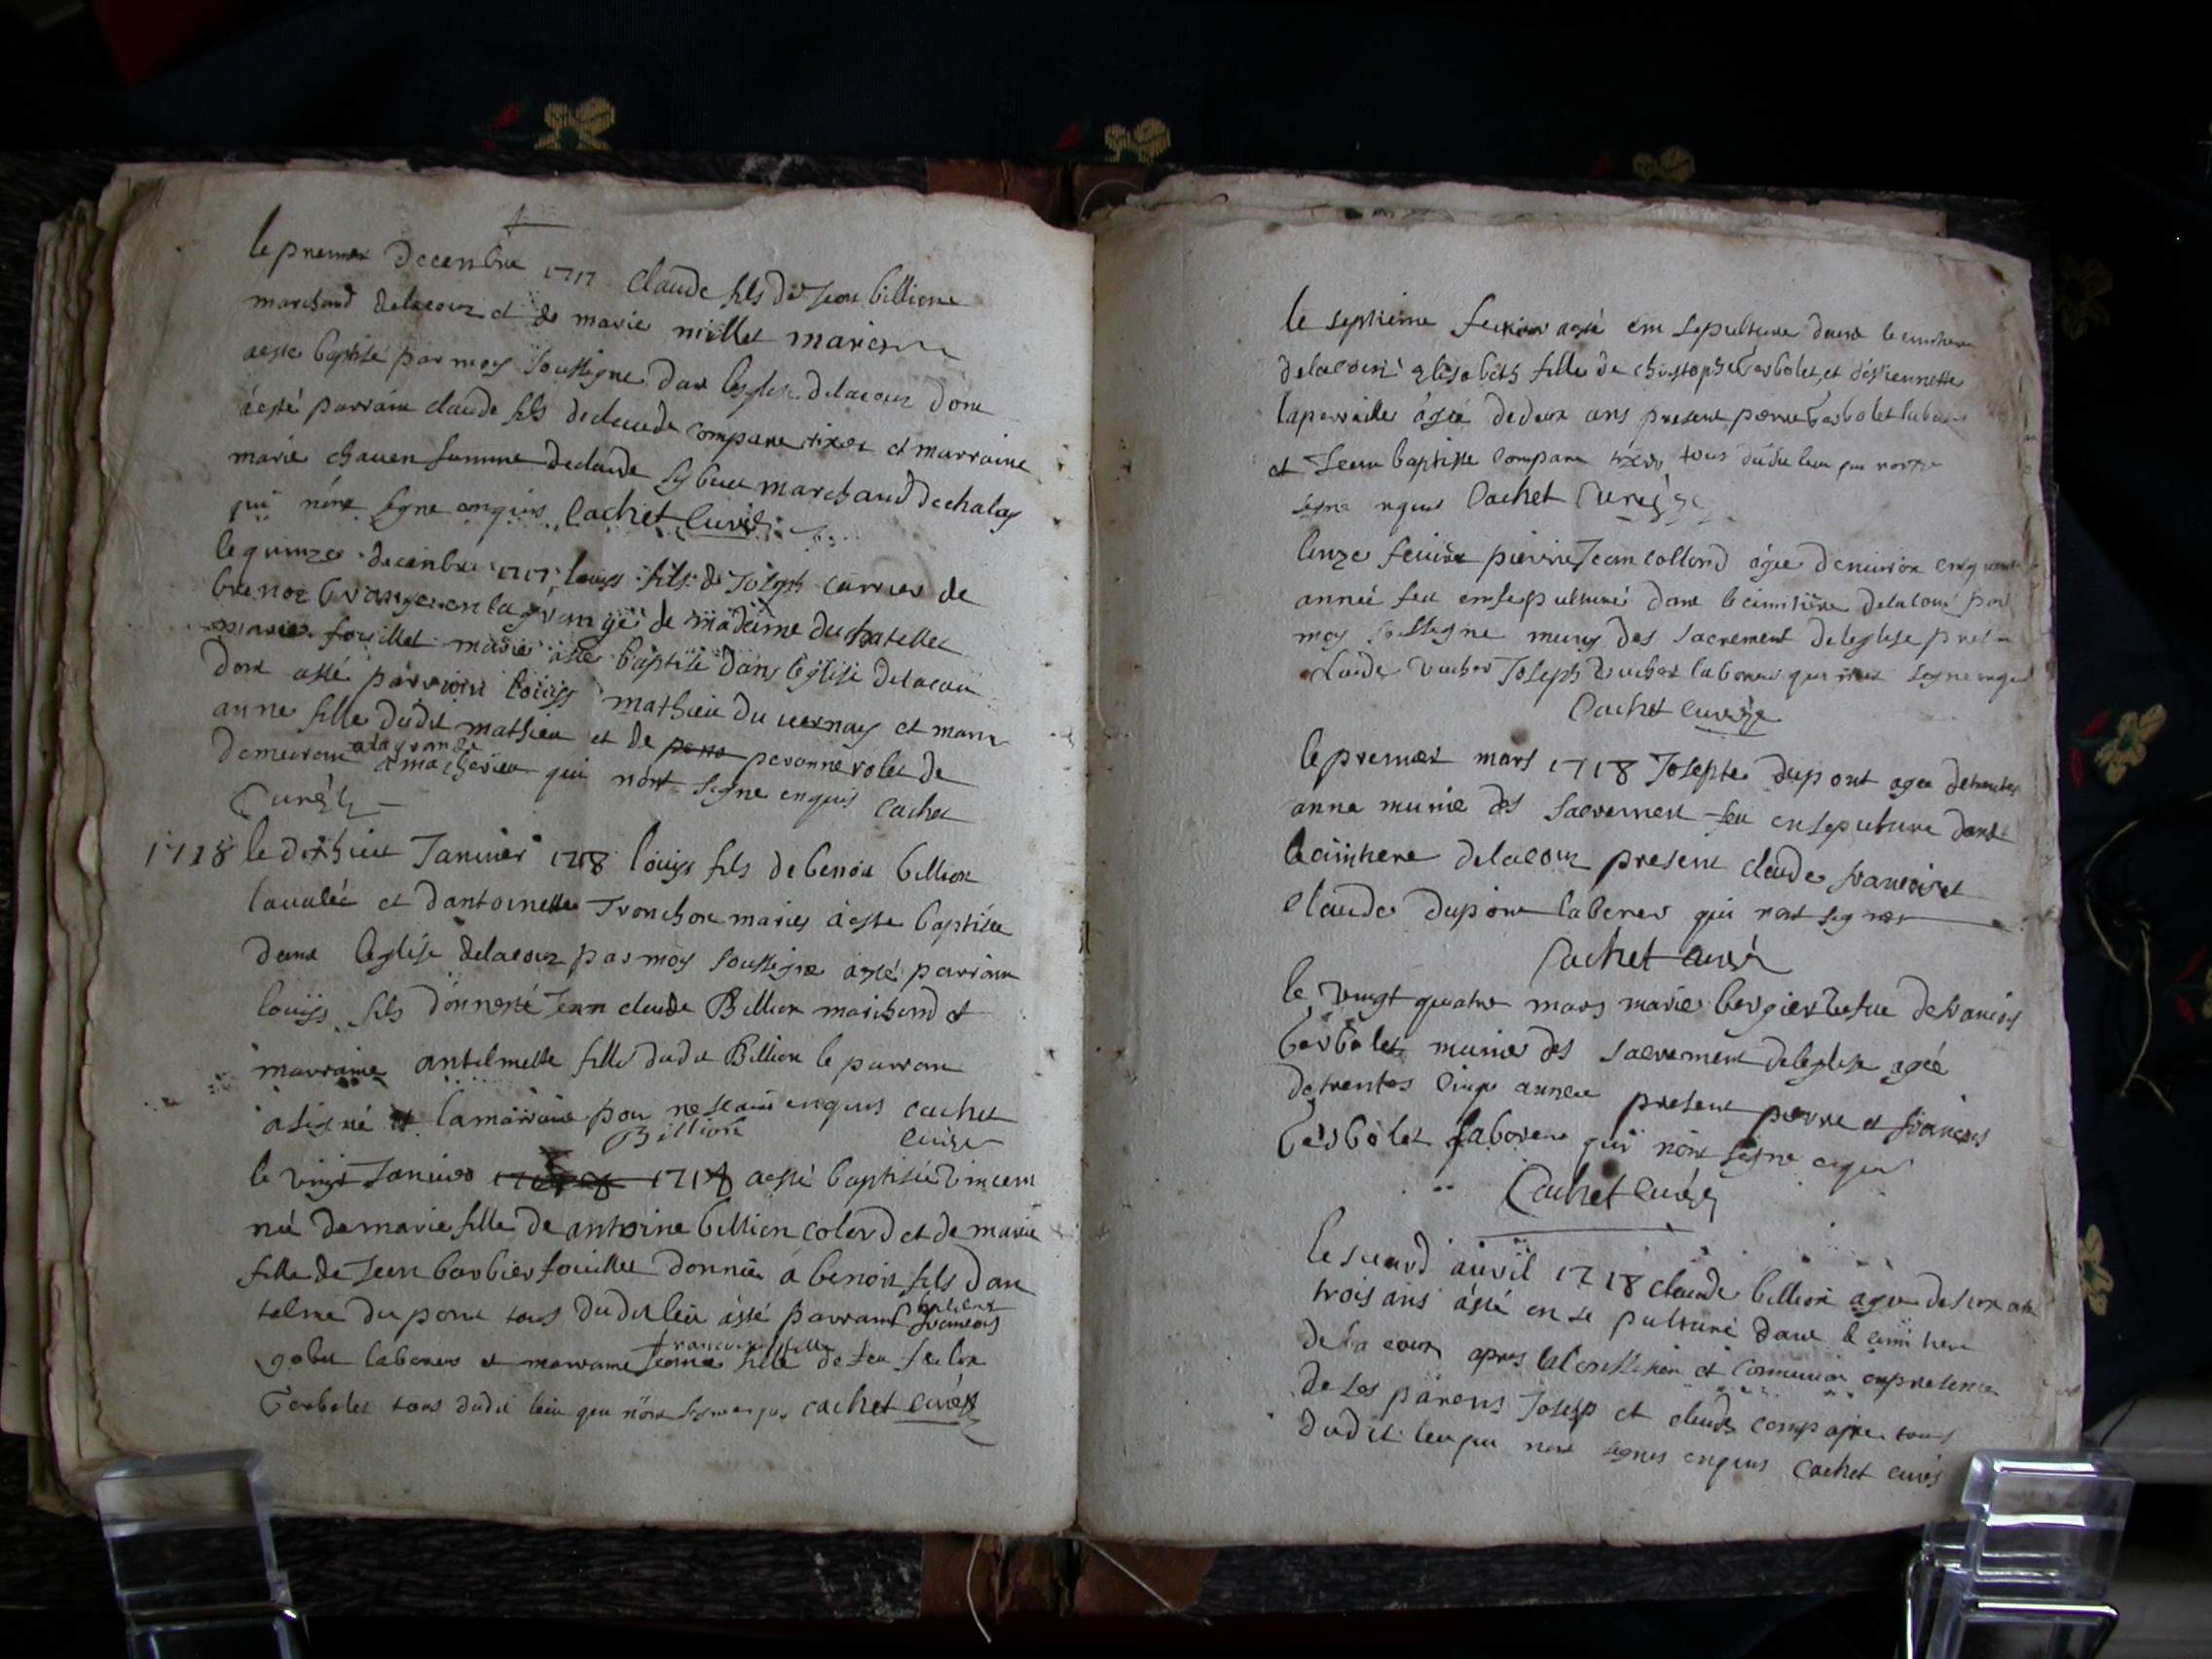 le premier decembre 1717 Claude fils de Jean billion
marchand delacoux et de marie millet maries
aeste baptisé par moy soussigne dans leglise delacoux dont
aesté parrain claude fils de claude compare tixer et marraine
marie chauen famme de claude marchand de chaley
qui nont signe enquis Cachet Curé
le quinze decembre 1717 louys fils de Joseph carrier de
en la grange de madame du chatellet
marie fouillet maries aste baptisé dans leglise delacoux
dont asté parrain louys mathieu du uernay et marr
anne fille dudit mathieu et de peronne rolet de
demeurant a la grange qui nont signe enquis Cachet
Curé
1718 le dixhuit Janvier 1718 louys fils de benoit billion
lavalée et dantoinette Tronchon maries à este baptisée
dans leglise delacoux par moy soussigne asté parrain
louys fils d'honneste Jean claude Billion marchand et
marraine antelmette fille dudit Billion le parrain
a signé la marraine pour ne scavoir enquis cachet
Billion curé
le vingt Janvier 1718 aesté baptisée vincent
né de marie fille de antoine billion colord et de marie
fille de Jean barbier fouillet donnée à benoit fils dan
telme du pont tous dudit lieu asté parrain francois
gobet laboreur et marraine francoise fille de feu
berbolet tous dudit lieu qui nont signe enquis cachet curé
le septieme feurier asté em sepulturee dans le cimitiere
delacoux elisabeth fille de christophe berbolet, et d'estiennette
laperraille agée de deux ans present pierre berbolet labou
et Jean baptiste Compare tixer tous dudit lieu qui nont
signe enquis Cachet Curé
lonze feurier pierre Jean collord agée denuiron cinq
année feu ensepulturé dans le cimitière delacoux par
moy soussigne muny des sacrement deleglise presen
claude vuchet Joseph vuchet laboreur qui nont signe enquis
Cachet curé
le premier mars 1718 Josepte dupont agee de trentes
anne munie des sacrement feu ensepulture dans
le cimitiere delacoux present claude francois et
Claude dupont laboreur qui nont signer
Cachet curé
le vingt quatre mars marie bergier vefue de francois
berbolet munie des sacrement deleglise agée
de trentes cinqs annee present pierre et francois
berbolet laboreur qui nont signe enquis
Cachet curé
le second auril 1718 claude billion agee de
trois ans asté en se pulturé dans le cimitiere
de la coux apres la confession et Communion en presence
de ses parens Josesp et claude compagne tous
dudit lieu qui nont signes enquis Cachet curés